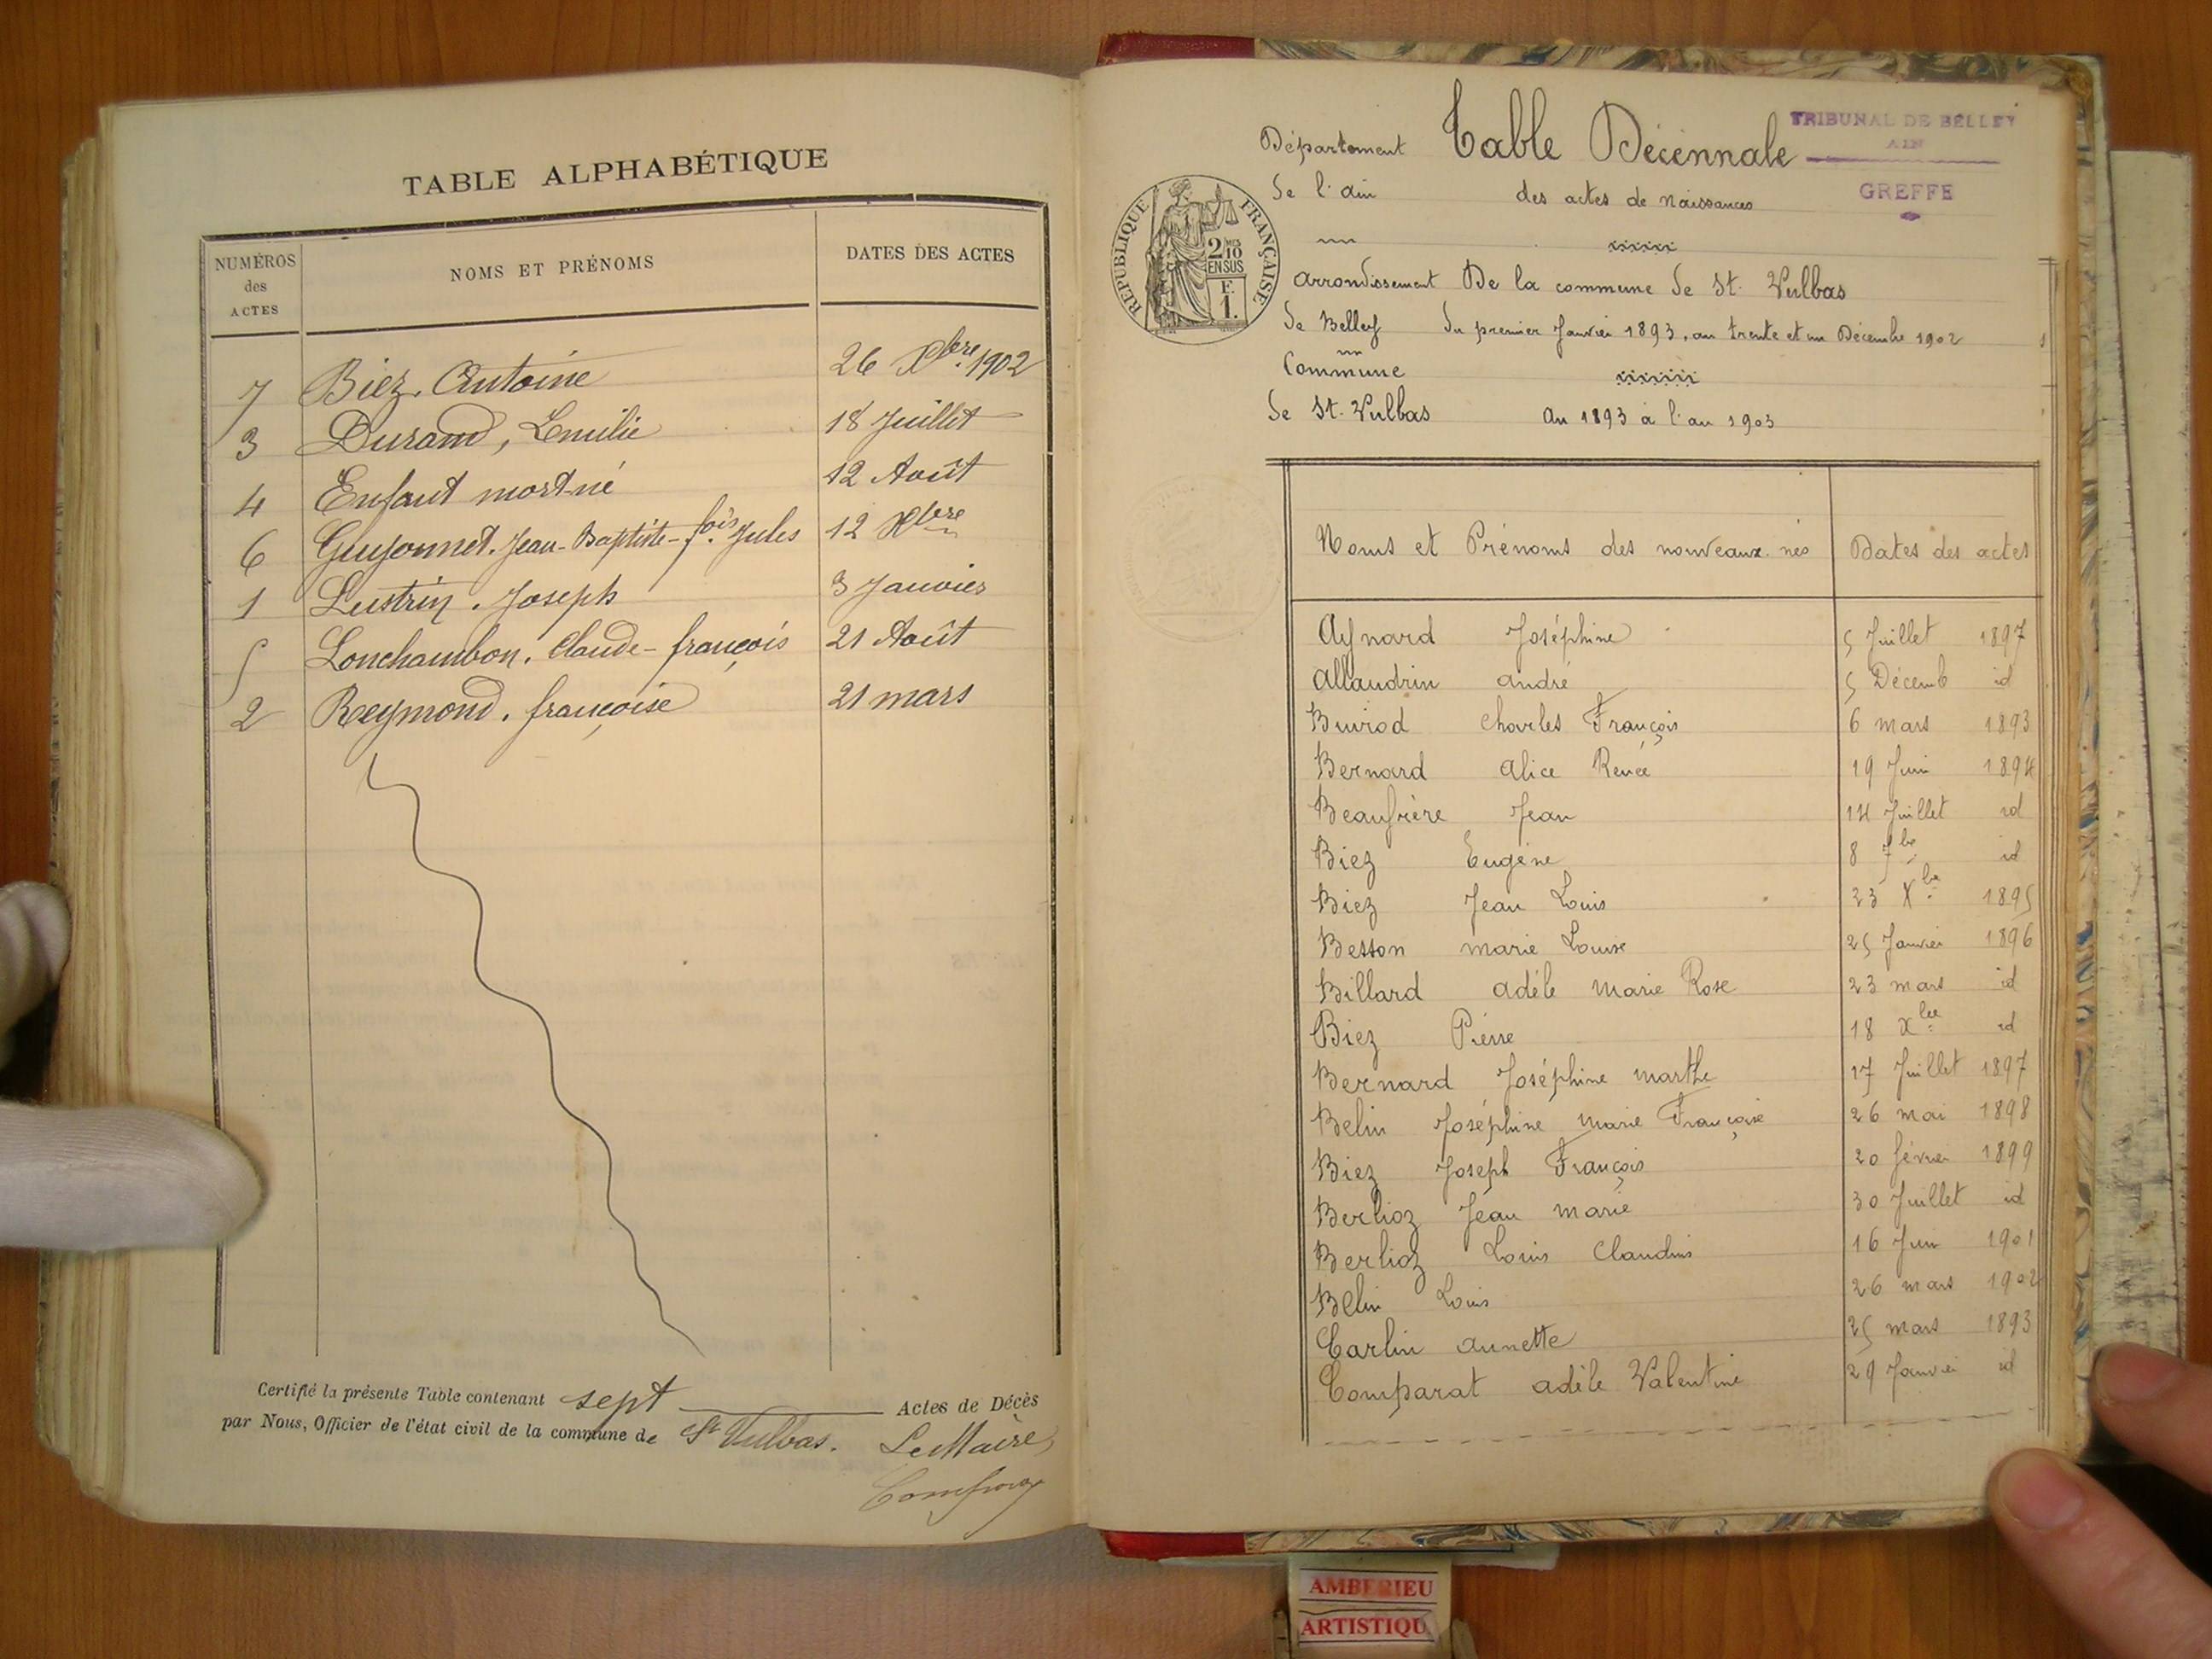 TABLE ALPHABÉTIQUE
NUMÉROS
des
ACTES
NOMS ET PRÉNOMS
DATES DES ACTES
7 Biez. Antoine 26 Xbre 1902
3 Durand, Emilie 18 Juillet
4 Enfant mort-né 12 Août
6 Guyonnet. Jean-Baptiste-fois Jules 12 Xbre
1 Lustrin. Joseph 3 Janvier
5 Lonchambon. Claude-françois 21 Août
2 Reymond. françoise 21 mars
Certifié la présente Table contenant sept Actes de Décès
par Nous, Officier de l'état civil de la commune de St Vulbas. Le Maire,
TRIBUNAL DE BELLEY
AIN
GREFFE
Département Table Décennale
de l'ain des actes de Naissances
RÉPUBLIQUE FRANÇAISE
2 MES
10
EN SUS
F.
1.
arrondissement De la commune de St. Vulbas
de Belley du premier Janvier 1893, au trente et un Décembre 1902
Commune
de St. Vulbas an 1893 à l'an 1903
Noms et Prénoms des nouveaux nés Dates des actes
Aynard Joséphine 5 Juillet 1897
Allaudrin andré 5 Décemb id
Buirod Charles François 6 mars 1893
Bernard Alice Renée 19 Juin 1894
Beaufrère Jean 14 Juillet id
Biez Eugène 8 7bre id
Biez Jean Louis 23 Xbre 1895
Besson marie Louise 25 Janvier 1896
Billard adèle Marie Rose 23 mars id
Biez Pierre 18 Xbre id
Bernard Joséphine marthe 17 Juillet 1897
Belin Joséphine marie Françoise 26 mai 1898
Biez Joseph François 20 février 1899
Berlioz Jean marie 30 Juillet id
Berlioz Louis Claudius 16 Juin 1901
Belin Louis 26 mars 1902
Carlin annette 25 mars 1893
Comparat adèle Valentine 29 Janvier id
AMBERIEU
ARTISTIQU